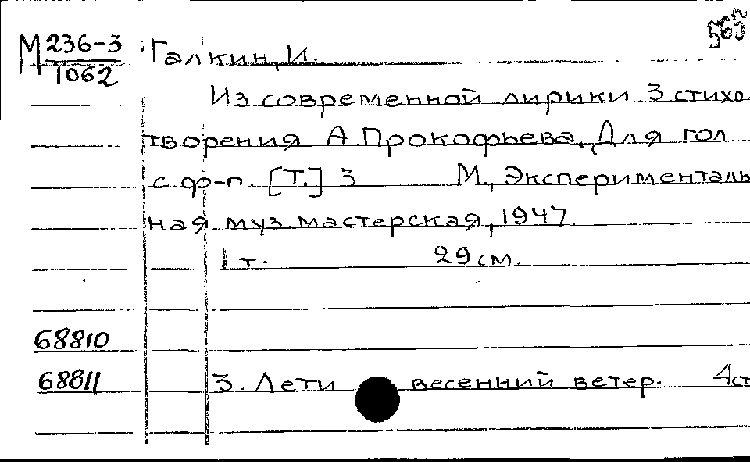 560
М 236-3 Галкин, И.
1062
Из современной лирики 3 стихо
творения А Прокофьева, Для гол
с ф-п. [Т.] 3 М., Эксперименталь
ная муз мастерская, 1947.
1 т. 29 см.
68810
68811 3. Лети весенний ветер. 4 ст